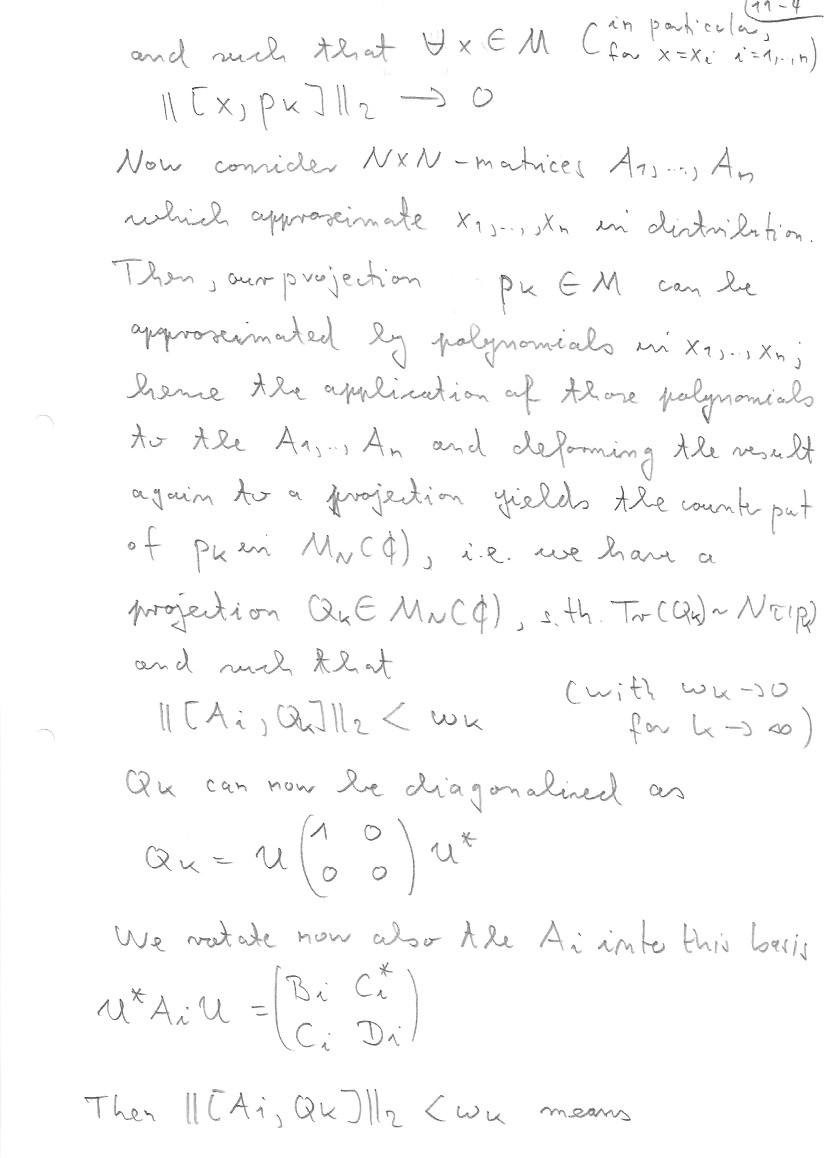 11-4
and such that ∀ x ∈ M (in particular, for x=xi i=1,..,n)
||[x, pk]||2 → 0
Now consider N×N-matrices A1,..., An
which approximate x1,..,xn in distribution.
Then, our projection pk ∈ M can be
approximated by polynomials in x1,..,xn;
hence the application of those polynomials
to the A1,.., An and deforming the result
again to a projection yields the counterpart
of pk in MN(ℂ), i.e. we have a
projection Qk ∈ MN(ℂ), s.th. Tr(Qk) ~ Nτ(pk)
and such that
||[Ai, Qk]||2 < ωk (with ωk → 0 for k → ∞)
Qk can now be diagonalized as
Qk = U (1 0
0 0) U*
We rotate now also the Ai into this basis
U*AiU = (Bi Ci*
Ci Di)
Then ||[Ai, Qk]||2 < ωk means